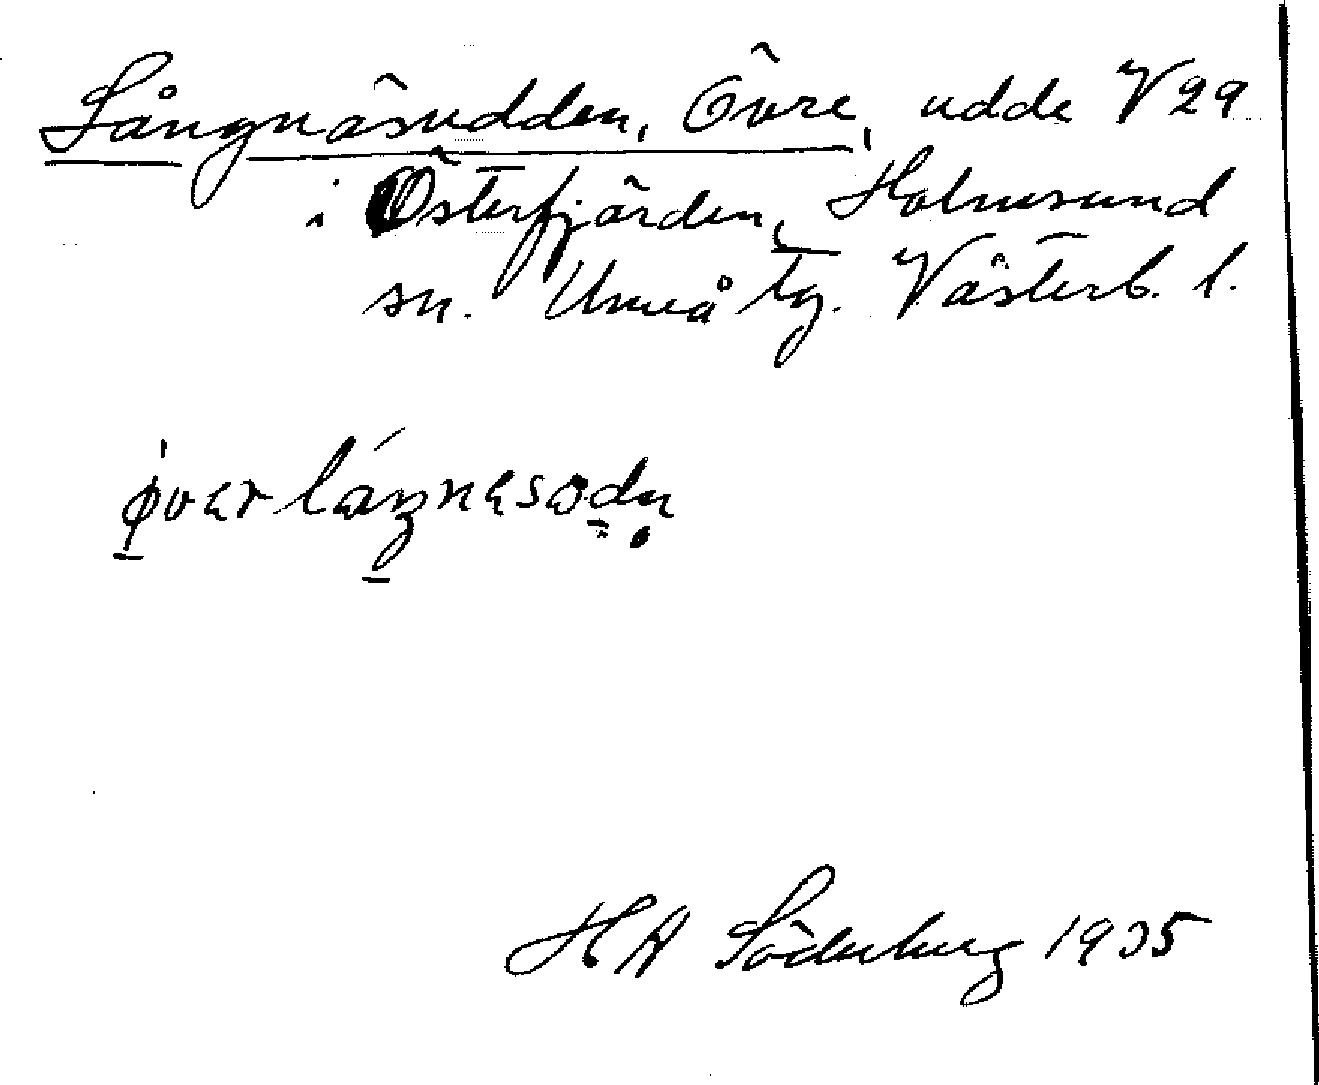 Långnäsudden, Övre, udde V 29
i Österfjärden, Holmsund
sn. Umeå tg. Västerb. l.
H A Söderberg 1935